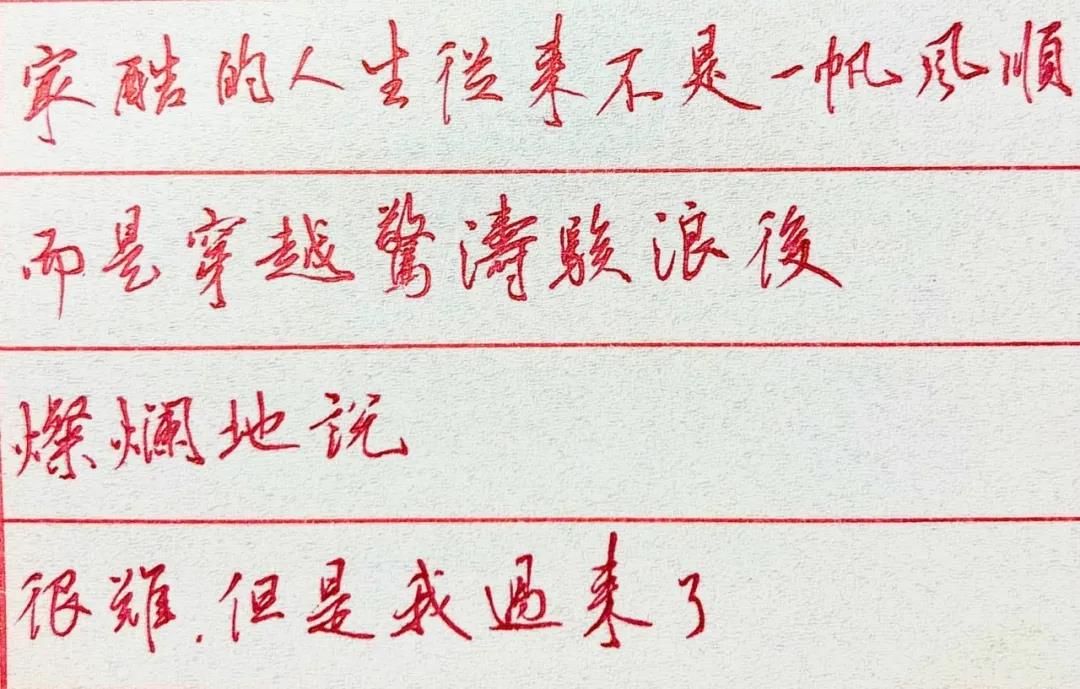 最酷的人生從来不是一帆風順
而是穿越驚濤駭浪後
燦爛地說
很難.但是我過来了